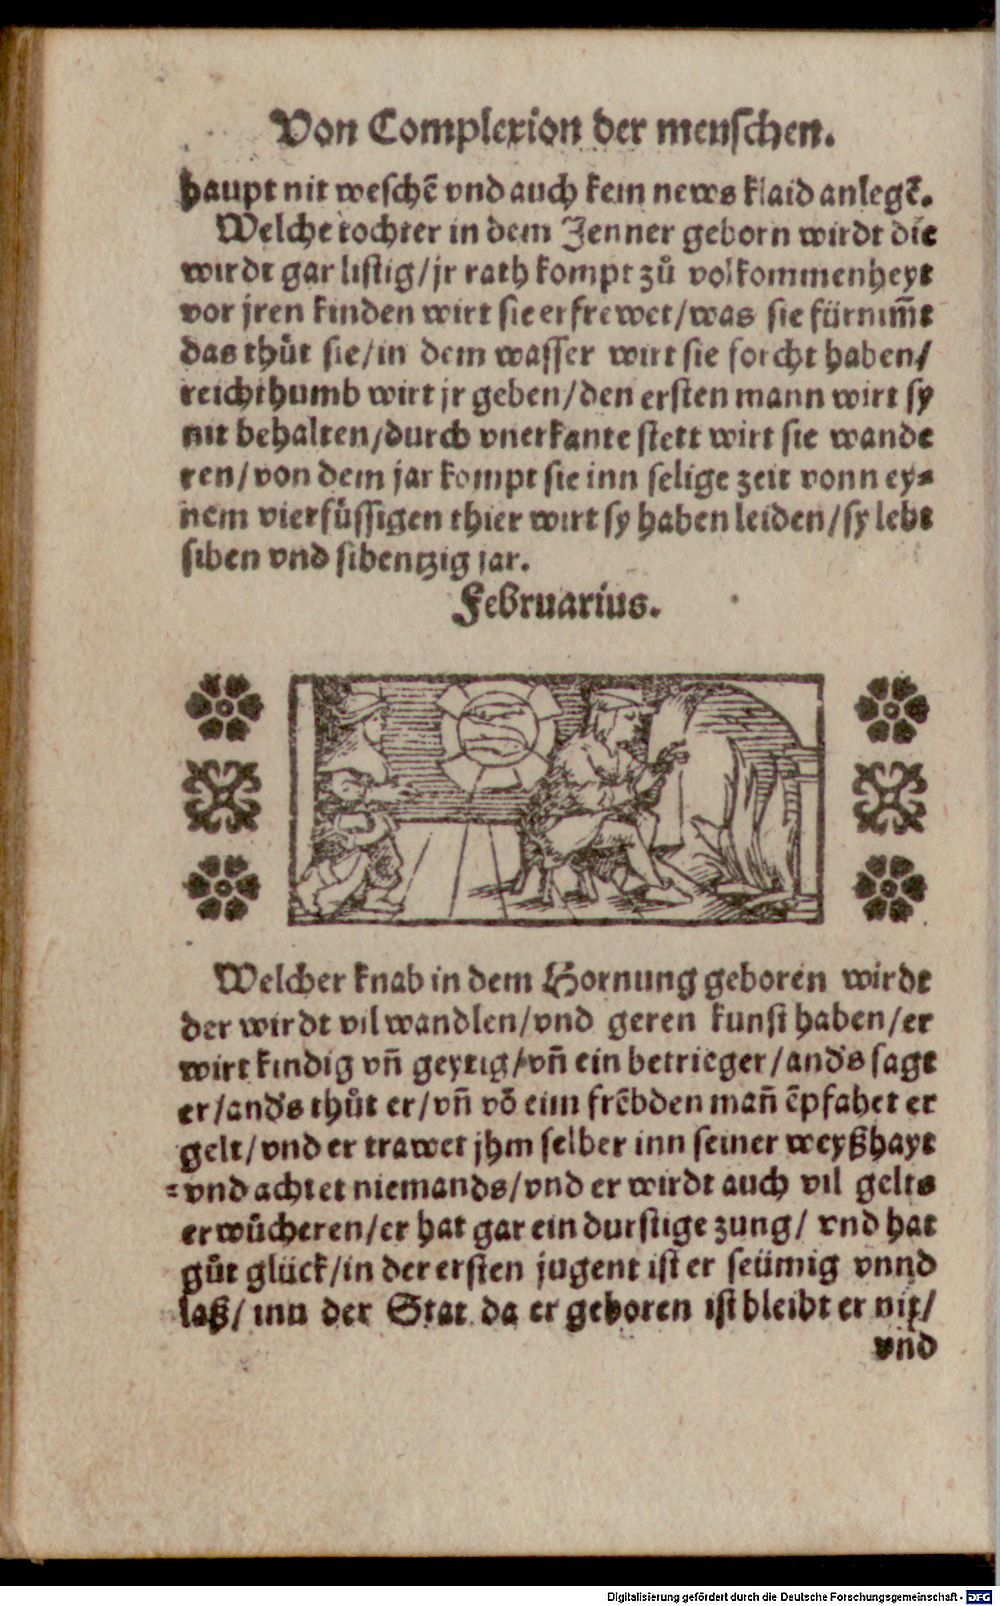 Von Complexion der menschen.
haupt nit weschē vnd auch kein news klaid anlegē.
Welche tochter in dem Jenner geborn wirdt die
wirdt gar listig/jr rath kompt zů volkommenheyt
vor jren kinden wirt sie erfrewet/was sie fürnim̄t
das thůt sie/in dem wasser wirt sie forcht haben/
reichthumb wirt jr geben/den ersten mann wirt sy
nit behalten/durch vnerkante stett wirt sie wande
ren/von dem jar kompt sie inn selige zeit vonn ey⸗
nem vierfüssigen thier wirt sy haben leiden/sy lebt
siben vnd sibentzig jar.
Februarius.
Welcher knab in dem Hornung geboren wirdt
der wirdt vil wandlen/vnd geren kunst haben/er
wirt kindig vn̄ geytig/vn̄ ein betrieger/and's sagt
er/and's thůt er/vn̄ vō eim frēbden man̄ ēpfahet er
gelt/vnd er trawet jhm selber inn seiner weyßhayt
vnd achtet niemands/vnd er wirdt auch vil gelts
erwůcheren/er hat gar ein durstige zung/ vnd hat
gůt glück/in der ersten jugent ist er seümig vnnd
laß/ inn der Stat da er geboren ist bleibt er nit/
vnd
Digitalisierung gefördert durch die Deutsche Forschungsgemeinschaft - DFG